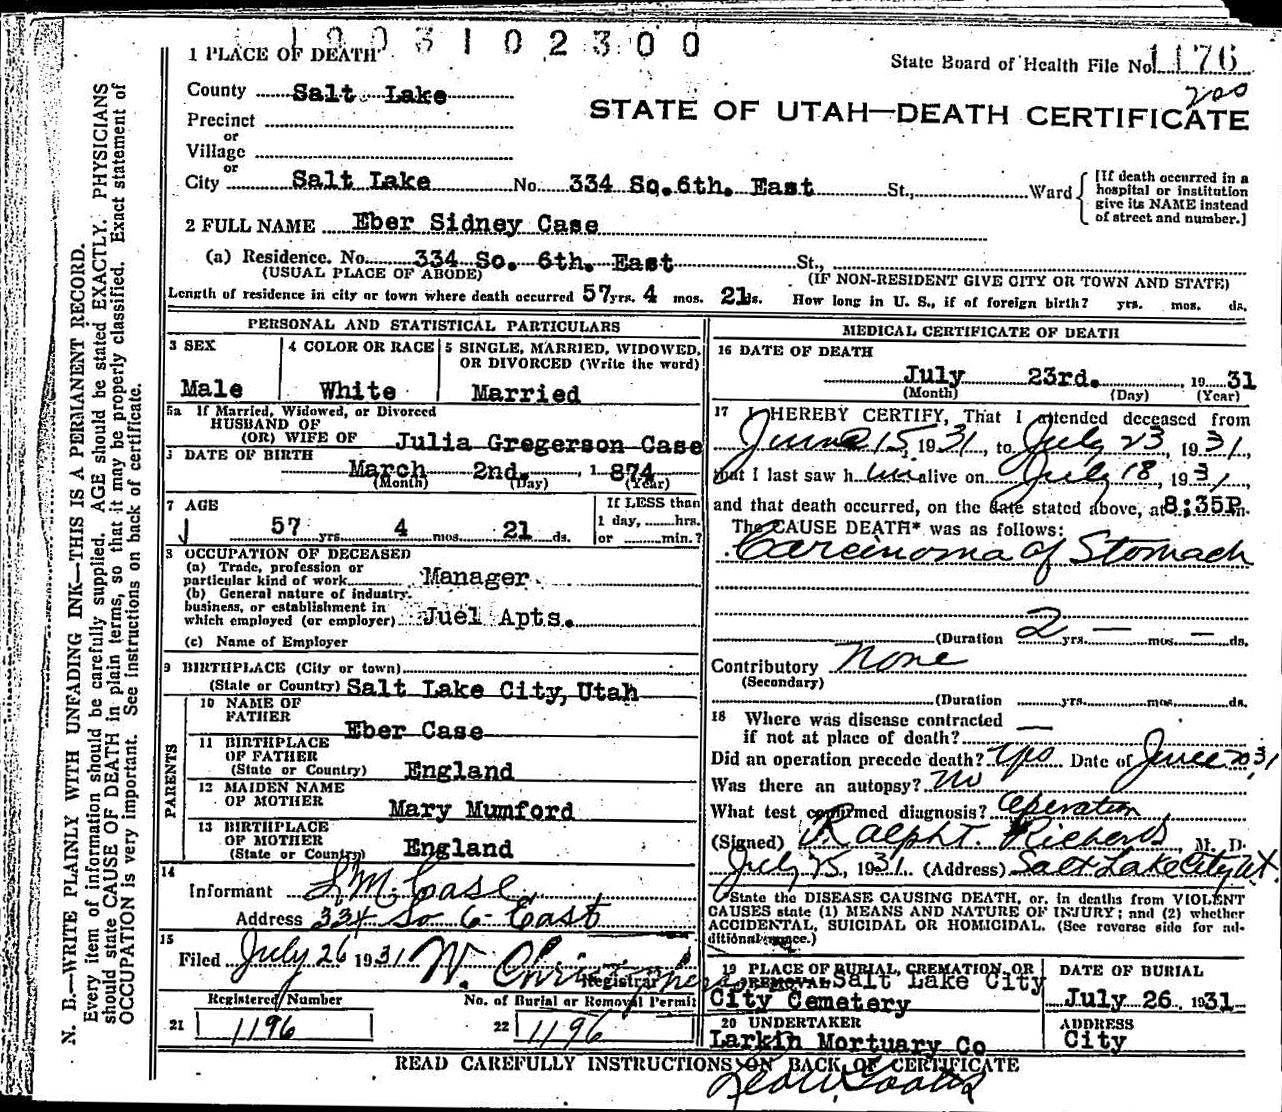 1003102300
1 PLACE OF DEATH
State Board of Health File No. 1176
200
County Salt Lake
STATE OF UTAH—DEATH CERTIFICATE
Precinct
or
Village
or
City Salt Lake No. 334 So. 6th. East St., Ward
[If death occurred in a
hospital or institution
give its NAME instead
of street and number.]
2 FULL NAME Eber Sidney Case
(a) Residence. No. 334 So. 6th. East St.,
(USUAL PLACE OF ABODE) (IF NON-RESIDENT GIVE CITY OR TOWN AND STATE)
Length of residence in city or town where death occurred 57 yrs. 4 mos. 21 ds. How long in U. S., if of foreign birth? yrs. mos. ds.
PERSONAL AND STATISTICAL PARTICULARS
3 SEX
Male
4 COLOR OR RACE
White
5 SINGLE, MARRIED, WIDOWED,
OR DIVORCED (Write the word)
Married
5a If Married, Widowed, or Divorced
HUSBAND OF
(OR) WIFE OF Julia Gregerson Case
DATE OF BIRTH
March 2nd. 1874
(Month) (Day) (Year)
7 AGE
57 yrs. 4 mos. 21 ds.
If LESS than
1 day, hrs.
or min.?
8 OCCUPATION OF DECEASED
(a) Trade, profession or
particular kind of work Manager
(b) General nature of industry.
business, or establishment in
which employed (or employer) Juel Apts.
(c) Name of Employer
9 BIRTHPLACE (City or town)
(State or Country) Salt Lake City, Utah
PARENTS
10 NAME OF
FATHER
Eber Case
11 BIRTHPLACE
OF FATHER
(State or Country) England
12 MAIDEN NAME
OF MOTHER
Mary Mumford
13 BIRTHPLACE
OF MOTHER
(State or Country) England
14
Informant L M. Case
Address 334 So 6 - East
15
Filed July 26 1931 W. Christopherson
Registrar
Registered Number No. of Burial or Removal Permit
21 1196 22 1196
MEDICAL CERTIFICATE OF DEATH
16 DATE OF DEATH
July 23rd. 1931
(Month) (Day) (Year)
17 I HEREBY CERTIFY, That I attended deceased from
June 15, 1931, to July 23, 1931,
that I last saw him alive on July 18, 1931,
and that death occurred, on the date stated above, at 8:35P. m.
The CAUSE DEATH* was as follows:
Carcinoma of Stomach
(Duration 2 yrs. — mos. — ds.
Contributory None
(Secondary)
(Duration yrs. mos. ds.
18 Where was disease contracted
if not at place of death? —
Did an operation precede death? Yes Date of June 20 31
Was there an autopsy? No
What test confirmed diagnosis? Operation
(Signed) Ralph T. Richards, M. D.
July 25, 1931. (Address) Salt Lake City Ut.
*State the DISEASE CAUSING DEATH, or, in deaths from VIOLENT
CAUSES state (1) MEANS AND NATURE OF INJURY; and (2) whether
ACCIDENTAL, SUICIDAL OR HOMICIDAL. (See reverse side for ad-
ditional space.)
19 PLACE OF BURIAL, CREMATION, OR
REMOVAL Salt Lake City
City Cemetery
DATE OF BURIAL
July 26 1931
20 UNDERTAKER
Larkin Mortuary Co
ADDRESS
City
READ CAREFULLY INSTRUCTIONS ON BACK OF CERTIFICATE
N. B.—WRITE PLAINLY WITH UNFADING INK—THIS IS A PERMANENT RECORD.
Every item of information should be carefully supplied. AGE should be stated EXACTLY. PHYSICIANS
should state CAUSE OF DEATH in plain terms, so that it may be properly classified. Exact statement of
OCCUPATION is very important. See instructions on back of certificate.